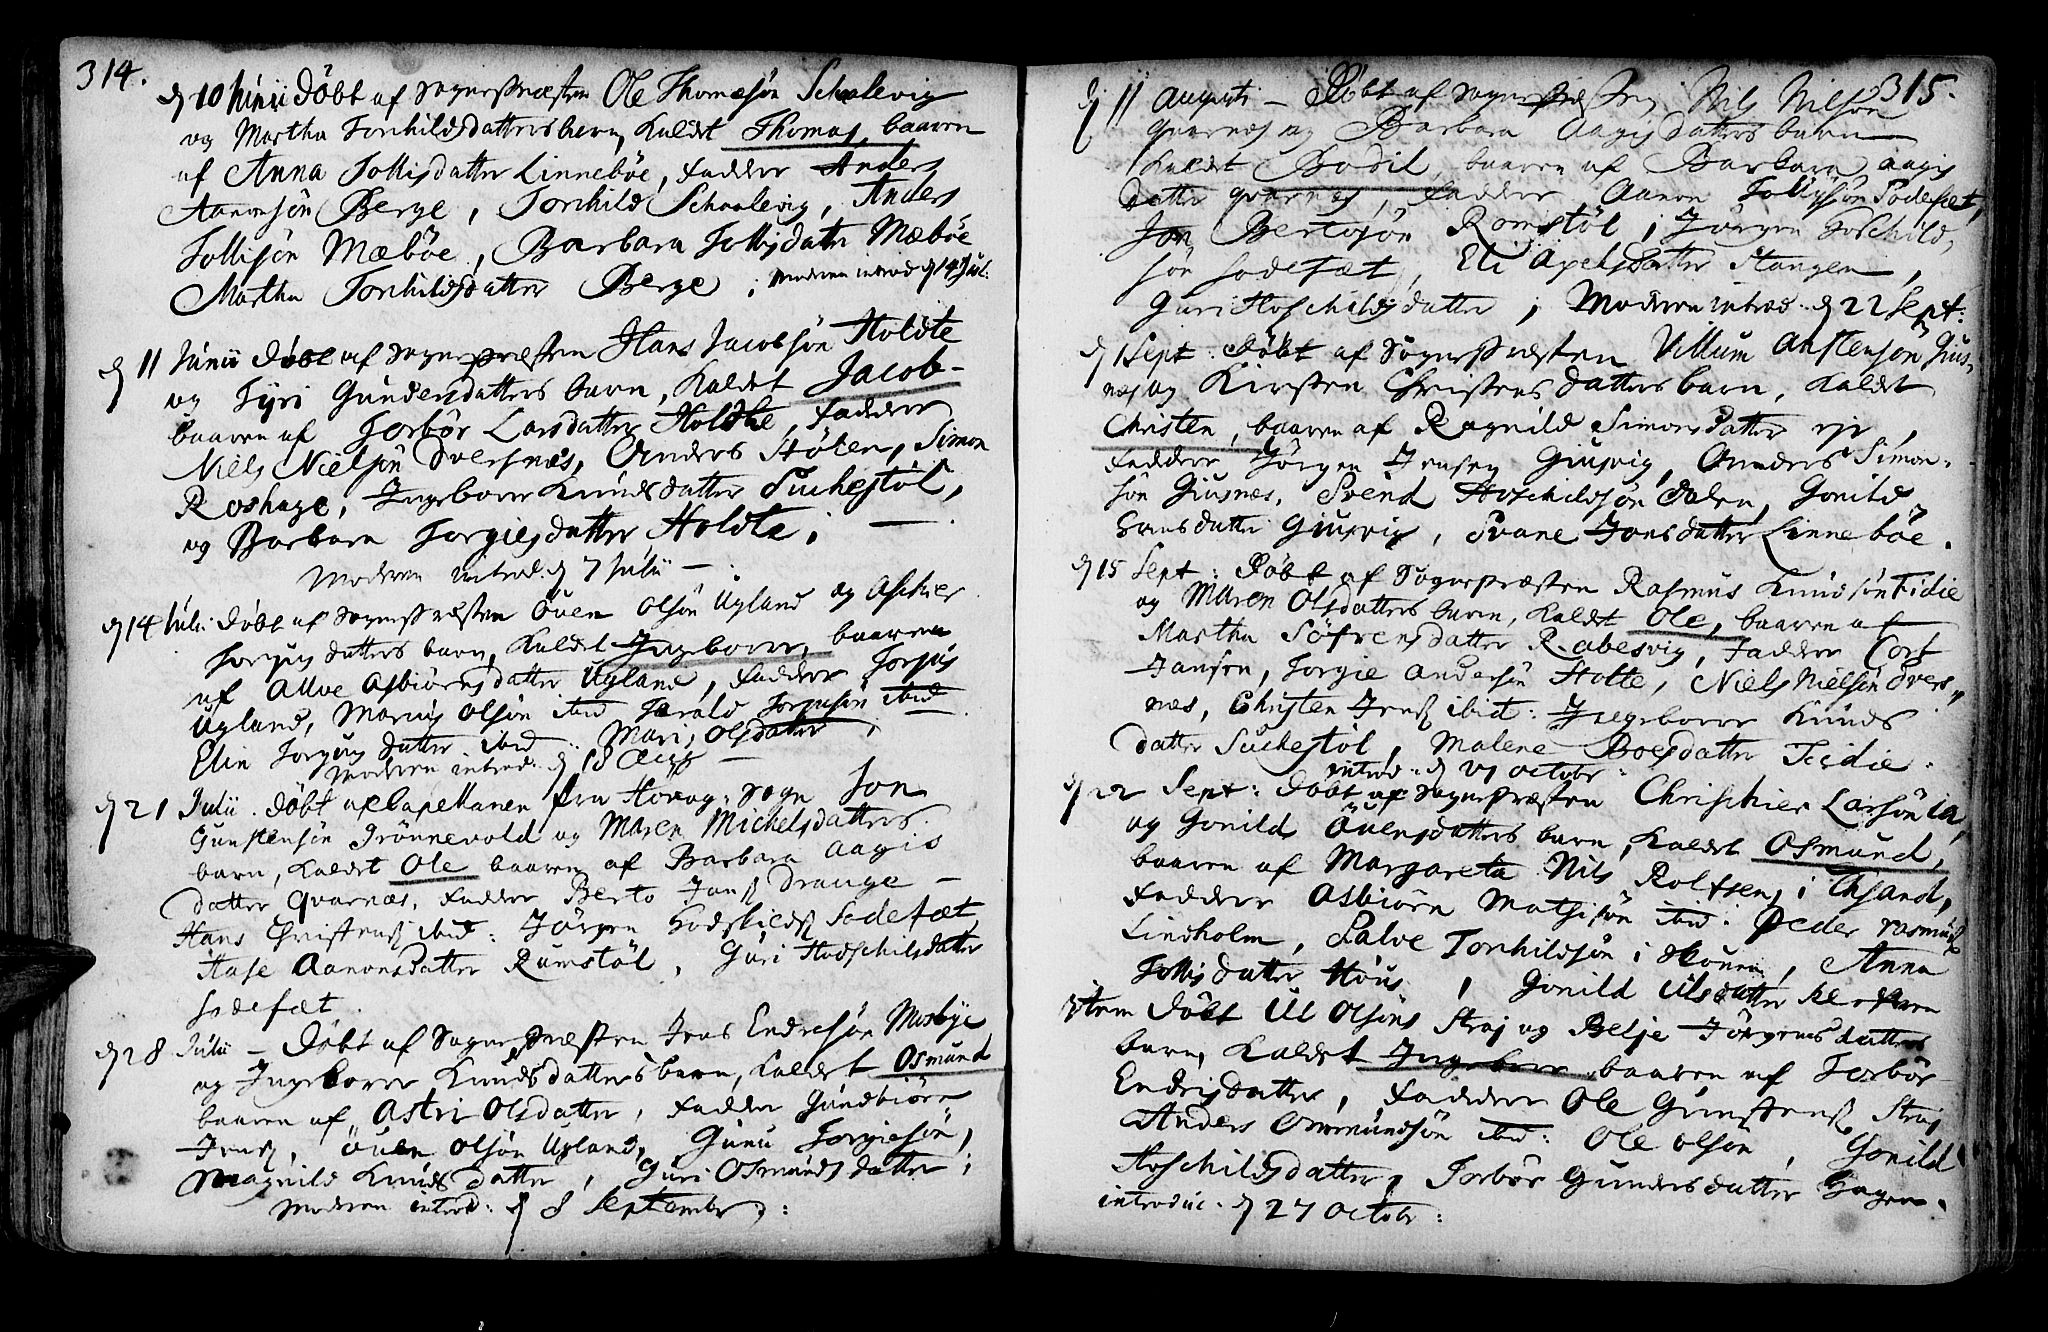 314.
d 10 Junii Döbt af Sogneprästen Ole Thomæsön Schalevig
og Martha Tonhildsdatters barn, kaldet Thomas, baaren
af Anna Tollisdatter Linneböe, Fadder Anders
Aanonsön Berge, Tonhild Schaalevig, Anders
Tollisön Mæböe, Barbara Tollisdatter Mæböe
Martha Tonhildsdatter Berge; Moderen introd. d 14 Jul.
d 11 Junii döbt af Sogneprästen Hans Jacobsön Holdte
og Tyri Gundersdatters barn, kaldet Jacob-
baaren af Torbör Larsdatter Holdte, Faddere
Niels Nielsön Dversnæs, Anders Stölen, Simon
Roshage, Ingeborre Knudsdatter Suchestöl,
og Barbara Torgiesdatter Holdte;
Moderen introd. d 7 Julii
d 14 Juli. döbt af Sogneprästen Öuen Olsön Ugland og Aschier
Torgusdatters barn, kaldet Ingeborre, baaren
af Allve Asbiörnsdatter Ugland, Fadder Torgus
Ugland, Marius Olsön ibid Harald Torgusön ibid
Elin Torgusdatter ibid. Mari Olsdatter,
Moderen introd. d 18 Aug
d 21 Julii. döbt af Capellanen fra Hövog-Sogn Jon
Gunstensön Trönnevold og Maren Michelsdatters
barn, kaldet Ole baaren af Barbara Aagis
datter Qvarnæs, Fadder Berto Jans Drange -
Hans Christens ibid: Jörgen Hodskilds Sodefæt,
Aase Aanonsdatter Rumstöl, Guri Hodschilsdatter
Sodefæt.
d 28 Julii - Döbt af Sogneprästen Jens Endresön Mosbye
og Ingeborre Knudsdatters barn, kaldet Osmund
baaren af Astri Olsdatter, Fadder Gundbiörn
Jens, Öuen Olsön Ugland, Gunu Torgiesön,
Magnild Knudsdatter, Guri Osmundsdatter;
Moderen introd: d 8 September:
315.
d 11 Augusti - Döbt af Sogneprästen Nils Nilsön
Qvarnæs og Barbara Aagisdatters barn
kaldet Bodil baaren af Barbara Aagis
datter Qvarnæs, Fadder Aanon Tollisön Sodefæt,
Jon Bertosön Romstöl, Jörgen Hoschild,
sön Sodefæt, Eli Axelsdatter Stangen,
Guri Hoschildsdatter; Moderen introd. d 22 Sept:
d 1 Sept: Döbt af Sogneprästen Villum Anstensön Giusnæs
og Kirsten Christensdatters barn, kaldet
Christen, baaren af Ragnild Simonsdatter
Faddere Jörgen Jensen Giusvig, Anders Simon-
sön Giusnæs, Svend Hoschildsön Dalen, Gonild
Hansdatter Giusvig, Svane Jonsdatter Linneböe.
d 15 Sept: Döbt af Sogneprästen Rasmus Knudsön Fidie
og Maren Olsdatters barn, kaldet Ole, baaren af
Martha Söfrensdatter Rabesvig, Fadder Cort
Jansen, Torgie Andersön Holte, Niels Nielsön Dvers-
næs, Christen Jens ibid: Ingeborre Knuds
datter Suchestöl, Malene Boesdatter Fidie.
introd. d 27 octobr:
d 22 Sept: Döbt af Sogneprästen Christier Larsön
og Gonild Öuensdatters barn, kaldet Osmund,
baaren af Margareta Nils Rolfsen,
Fadder Asbiörn Mathisön ibid: Peder rasmus
Lindholm, Salve Tonhildsön i Skouen, Anna
Tollisdatter Höus, Gonild Ulsdatter
item döbt Ul Olsöns Straj og Belje Jörgensdatters
barn, kaldet Ingeborre baaren af Torbör
Endrisdatter, Fadder Ole Gunstens Straj
Anders Ommundsön ibid: Ole Olsön, Gonild
Hoschildsdatter, Torbör Gundersdatter Hagen.
introduc. d 27 octobr: